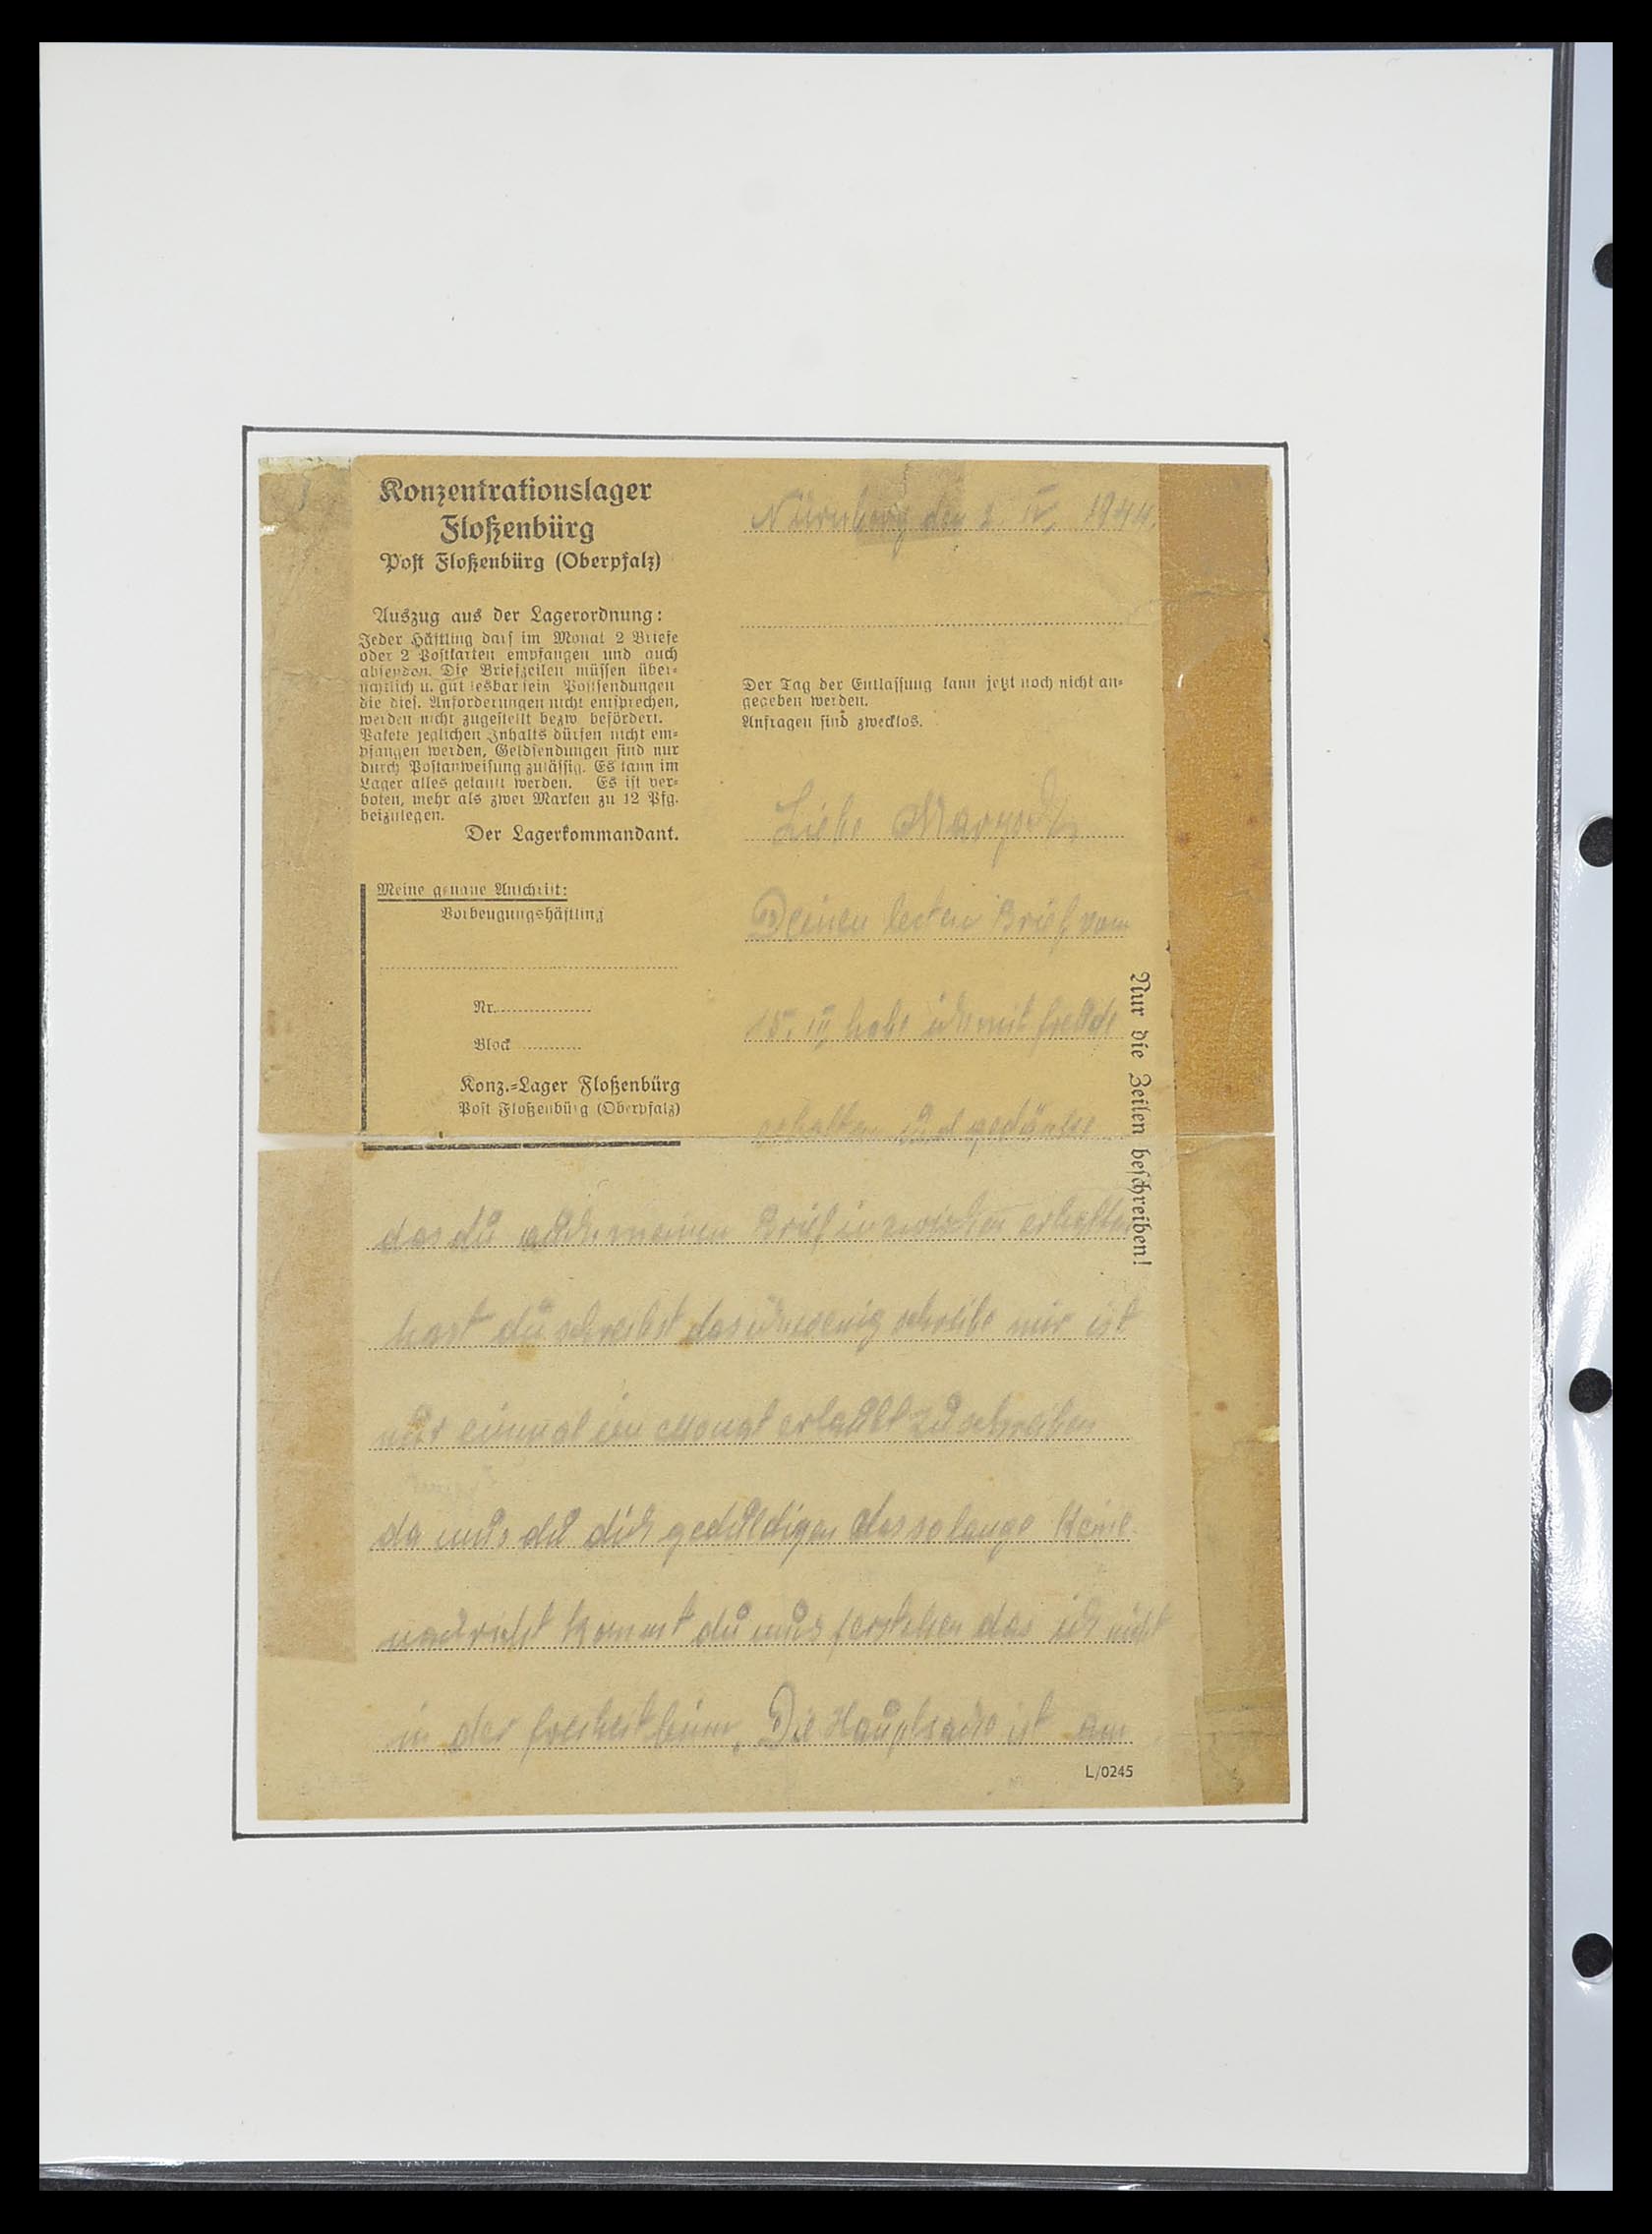 Konzentrationslager
Floßenbürg
Post Floßenbürg (Oberpfalz)
Auszug aus der Lagerordnung:
Jeder Häftling darf im Monat 2 Briefe
oder 2 Postkarten empfangen und auch
absenden. Die Briefzeilen müssen über-
sichtlich u. gut lesbar sein Postsendungen
die dies. Anforderungen nicht entsprechen,
werden nicht zugestellt bezw befördert.
Pakete jeglichen Inhalts dürfen nicht em-
pfangen werden, Geldsendungen sind nur
durch Postanweisung zulässig. Es kann im
Lager alles gekauft werden. Es ist ver-
boten, mehr als zwei Marken zu 12 Pfg.
beizulegen.
Der Lagerkommandant.
Meine genaue Anschrift:
Vorbeugungshäftling
Nr.
Block
Konz.-Lager Floßenbürg
Post Floßenbürg (Oberpfalz)
Nürnberg den 2 IV, 1944.
Der Tag der Entlassung kann jetzt noch nicht an-
gegeben werden.
Anfragen sind zwecklos.
Liebe
Deinen Brief vom
15. III habe ich mit
erhalten
das du meinen Brief inzwischen erhalten
hast du schreibst das ich wenig schreibe mir ist
nur einmal im Monat erlaubt zu schreiben
da mus du dich geduldigen das so lange keine
nachricht kommt du mus ferstehen das ich nicht
in der freiheit Die Hauptsache ist am
Nur die Zeilen beschreiben!
L/0245